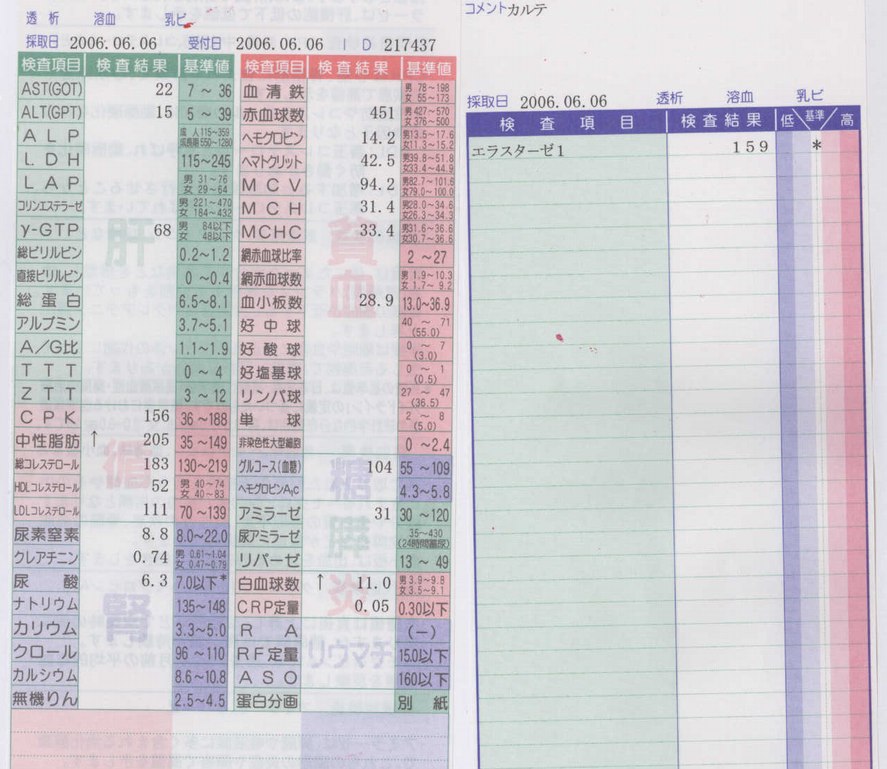 コメント カルテ
透析 溶血 乳ビ
採取日 2006.06.06 受付日 2006.06.06 ID 217437
検査項目 検査結果 基準値
AST(GOT) 22 7 ～ 36
ALT(GPT) 15 5 ～ 39
ALP 成人115～359 成長期550～1280
LDH 115～245
LAP 男 31～76 女 29～64
コリンエステラーゼ 男 221～470 女 184～432
γ-GTP 68 男 84以下 女 48以下
総ビリルビン 0.2～1.2
直接ビリルビン 0 ～0.4
総蛋白 6.5～8.1
アルブミン 3.7～5.1
A/G比 1.1～1.9
TTT 0 ～ 4
ZTT 3 ～ 12
CPK 156 36 ～188
中性脂肪 ↑ 205 35 ～149
総コレステロール 183 130～219
HDLコレステロール 52 男 40～74 女 40～83
LDLコレステロール 111 70 ～139
尿素窒素 8.8 8.0～22.0
クレアチニン 0.74 男 0.61～1.04 女 0.47～0.79
尿酸 6.3 7.0以下*
ナトリウム 135～148
カリウム 3.3～5.0
クロール 96 ～110
カルシウム 8.6～10.8
無機りん 2.5～4.5
肝
循
腎
検査項目 検査結果 基準値
血清鉄 男 78～198 女 55～173
赤血球数 451 男 427～570 女 376～500
ヘモグロビン 14.2 男13.5～17.6 女11.3～15.2
ヘマトクリット 42.5 男39.8～51.8 女33.4～44.9
MCV 94.2 男82.7～101.6 女79.0～100.0
MCH 31.4 男28.0～34.6 女26.3～34.3
MCHC 33.4 男31.6～36.6 女30.7～36.6
網赤血球比率 2 ～27
網赤血球数 男 1.9～10.3 女 1.7～ 9.2
血小板数 28.9 13.0～36.9
好中球 40 ～ 71 (55.0)
好酸球 0 ～ 7 (3.0)
好塩基球 0 ～ 1 (0.5)
リンパ球 27 ～ 47 (36.5)
単球 2 ～ 8 (5.0)
非染色性大型細胞 0 ～2.4
グルコース(血糖) 104 55 ～109
ヘモグロビンA1C 4.3～5.8
アミラーゼ 31 30 ～120
尿アミラーゼ 35～430 (24時間蓄尿)
リパーゼ 13 ～ 49
白血球数 ↑ 11.0 男3.9～9.8 女3.5～9.1
CRP定量 0.05 0.30以下
RA (－)
RF定量 15.0以下
ASO 160以下
蛋白分画 別紙
貧血
糖
膵
炎
リウマチ
採取日 2006.06.06 透析 溶血 乳ビ
検査項目 検査結果 低 基準 高
エラスターゼ1 159 *